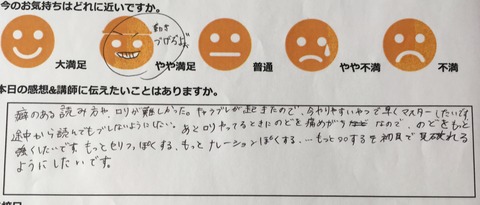 今のお気持ちはどれに近いですか。
大満足 やや満足 普通 やや不満 不満
本日の感想&講師に伝えたいことはありますか。
癖のある読み方や、ロリが難しかった。キャラブレが起きたので、今やりやすいやつで早くマスターしたいです。
途中から読んでもブレないようにしたい。あとロリやってるときにのどを痛めがちなので、のどをもっと
強くしたいです。もっとセリフっぽくする、もっとナレーションぽくする、…もっと〇〇するを初見で見破れる
ようにしたいです。